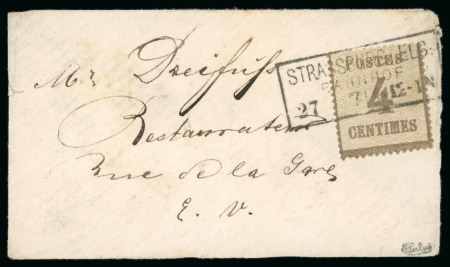 Mr. Dreifuss
Restaurateur
Rue de la Gare
E. V.
STRASSBURG ELS.
BAHNHOF
27 12-1N
POSTES
4
CENTIMES